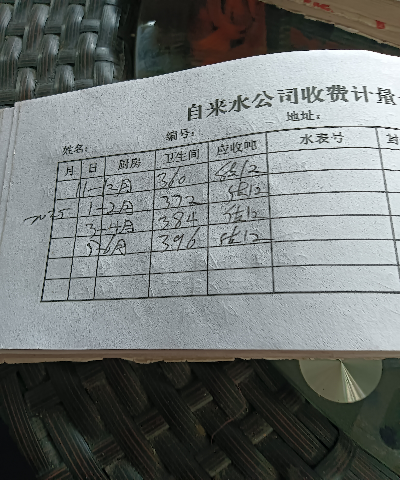 自来水公司收费计量
姓名： 编号： 地址：
月 日 厨房 卫生间 应收吨 水表号
11-12月 360 12
2025 1-2月 372 12
3-4月 384 12
5-6月 396 12